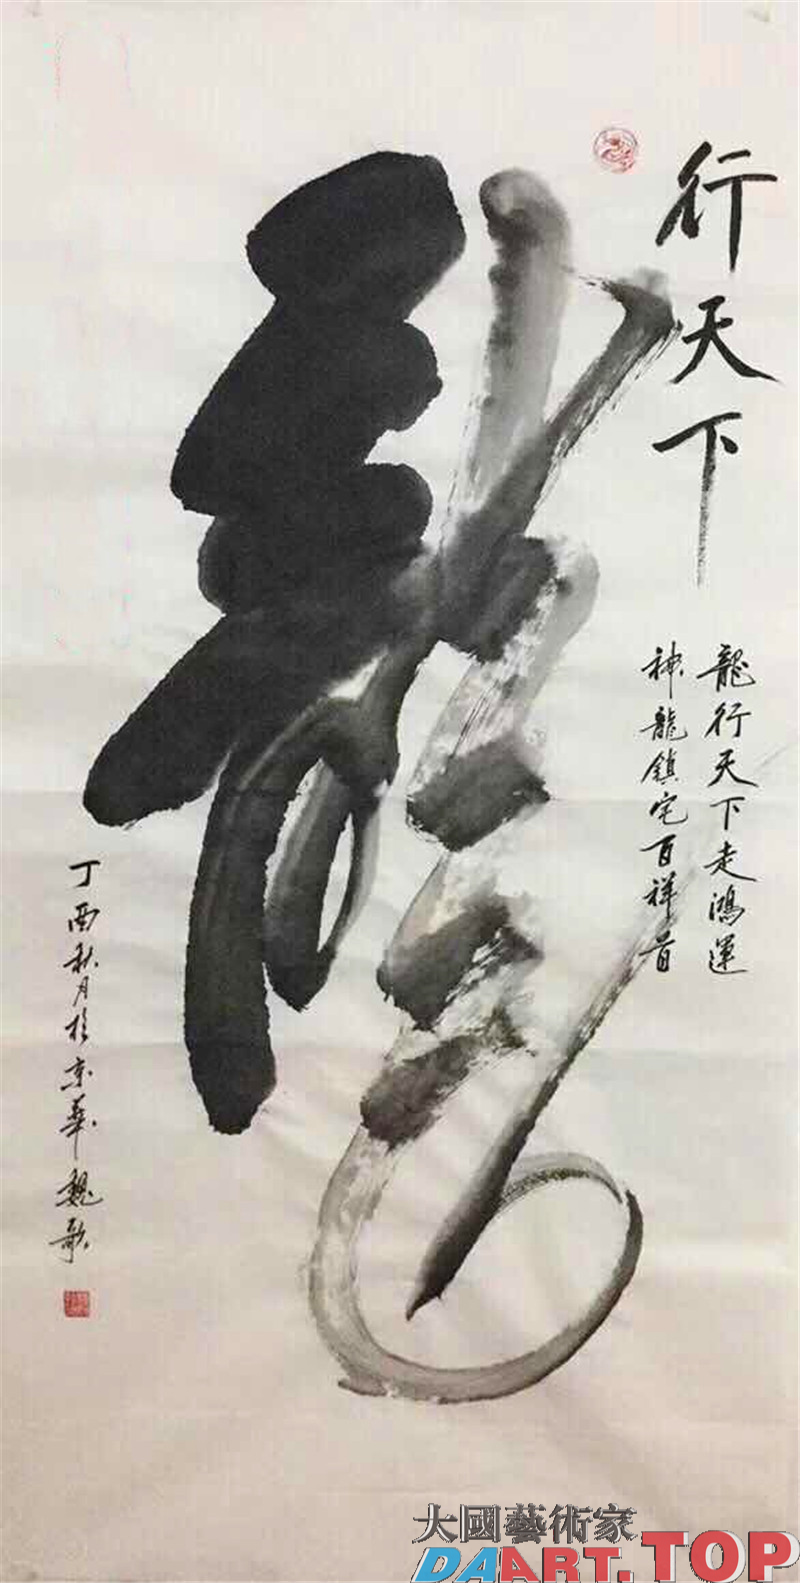 龍
行天下
龍行天下走鴻運
神龍鎮宅百祥首
丁酉秋月於京華魏歌
大國藝術家
DAART.TOP